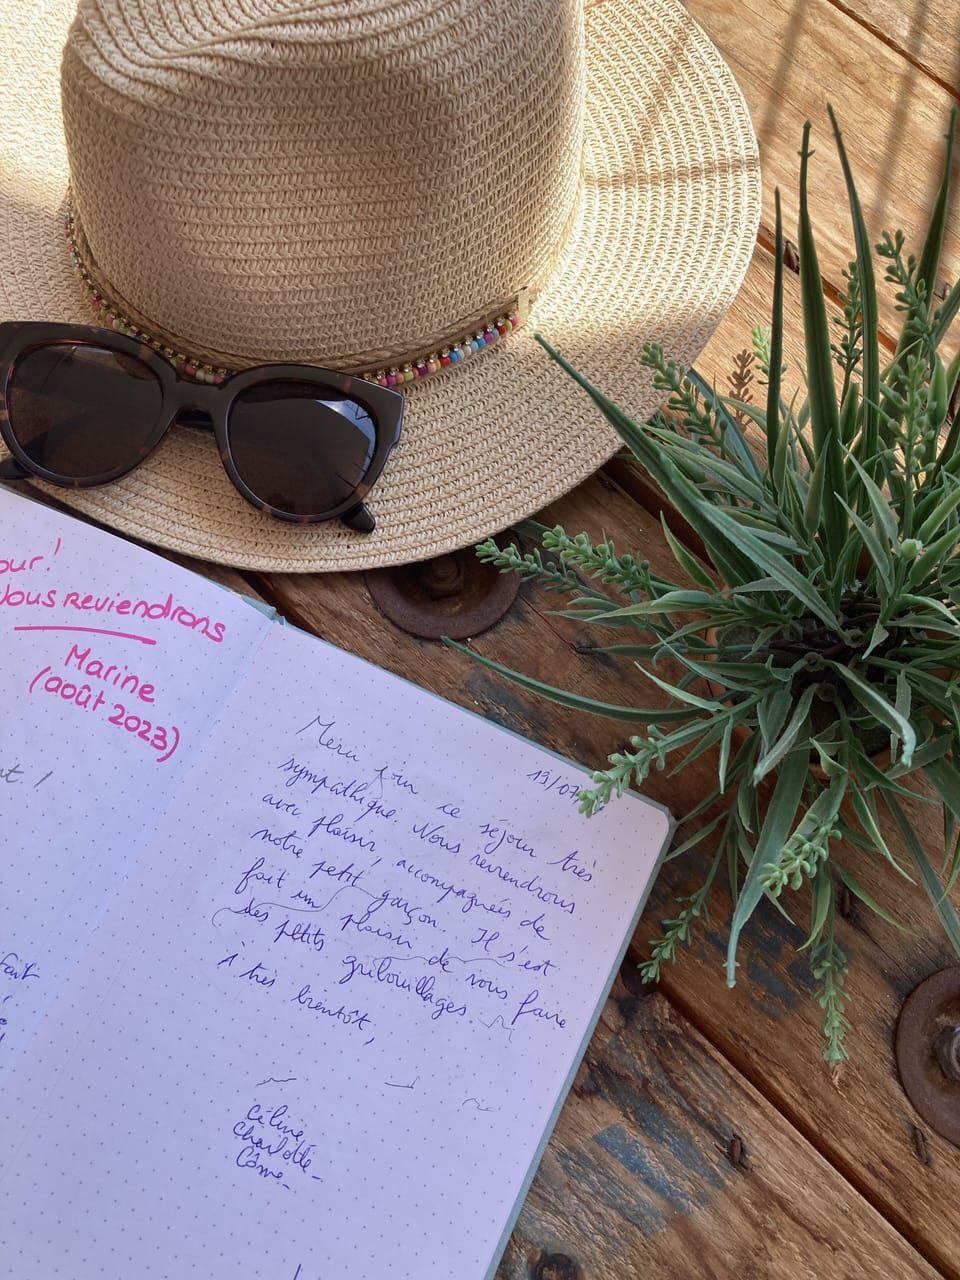 our!
Nous reviendrons
Marine
(août 2023)
nt !
fait
!
13/07
Merci pour ce séjour très
sympathique. Nous reviendrons
avec plaisir, accompagnées de
notre petit garçon. Il s'est
fait un plaisir de vous faire
des petits gribouillages.
À très bientôt,
Céline,
Charlotte
Côme